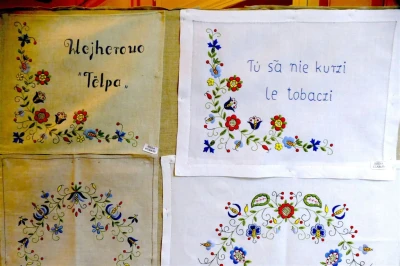 Wejherowo
"Tëlpa"
Tú sã nie kurzi
le tobaczi